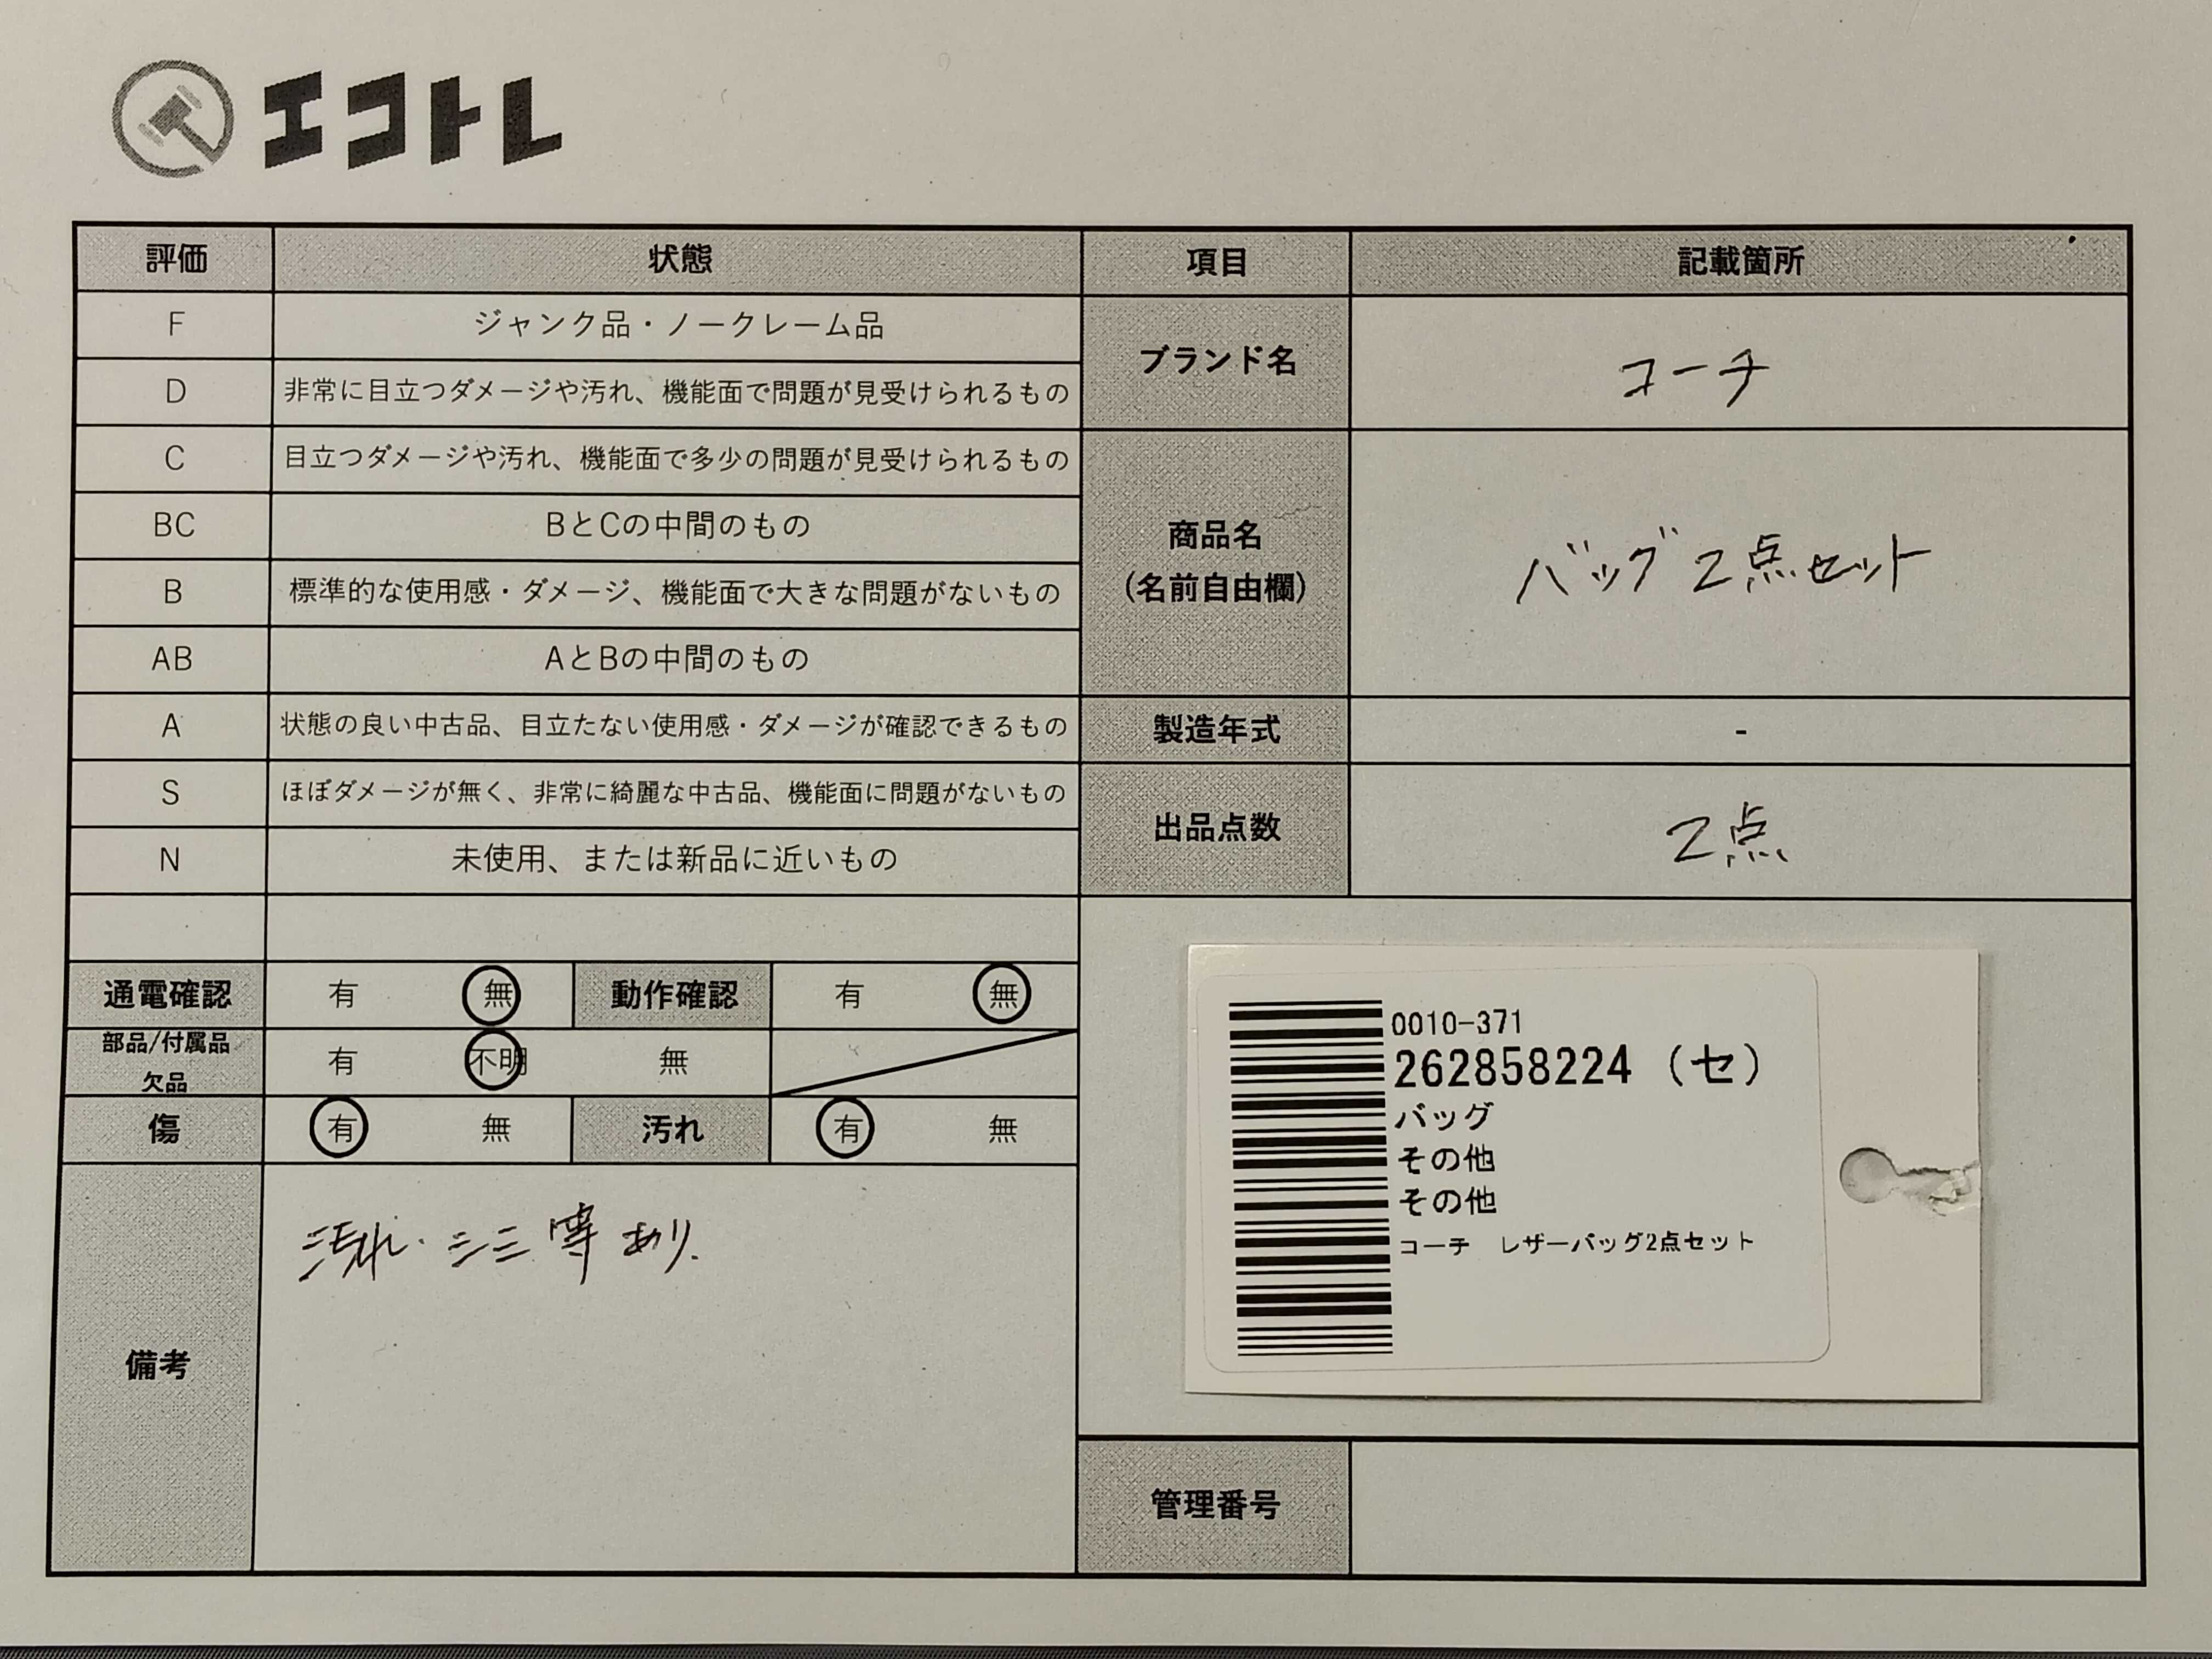 エコトレ
評価 状態 項目 記載箇所
F ジャンク品・ノークレーム品
D 非常に目立つダメージや汚れ、機能面で問題が見受けられるもの
ブランド名 コーチ
C 目立つダメージや汚れ、機能面で多少の問題が見受けられるもの
BC BとCの中間のもの
B 標準的な使用感・ダメージ、機能面で大きな問題がないもの
AB AとBの中間のもの
商品名
(名前自由欄)
バッグ2点セット
A 状態の良い中古品、目立たない使用感・ダメージが確認できるもの
製造年式 -
S ほぼダメージが無く、非常に綺麗な中古品、機能面に問題がないもの
N 未使用、または新品に近いもの
出品点数 2点
通電確認 有 無 動作確認 有 無
部品/付属品
欠品
有 不明 無
傷 有 無 汚れ 有 無
備考
汚れ・シミ等あり.
0010-371
262858224 (セ)
バッグ
その他
その他
コーチ レザーバッグ2点セット
管理番号